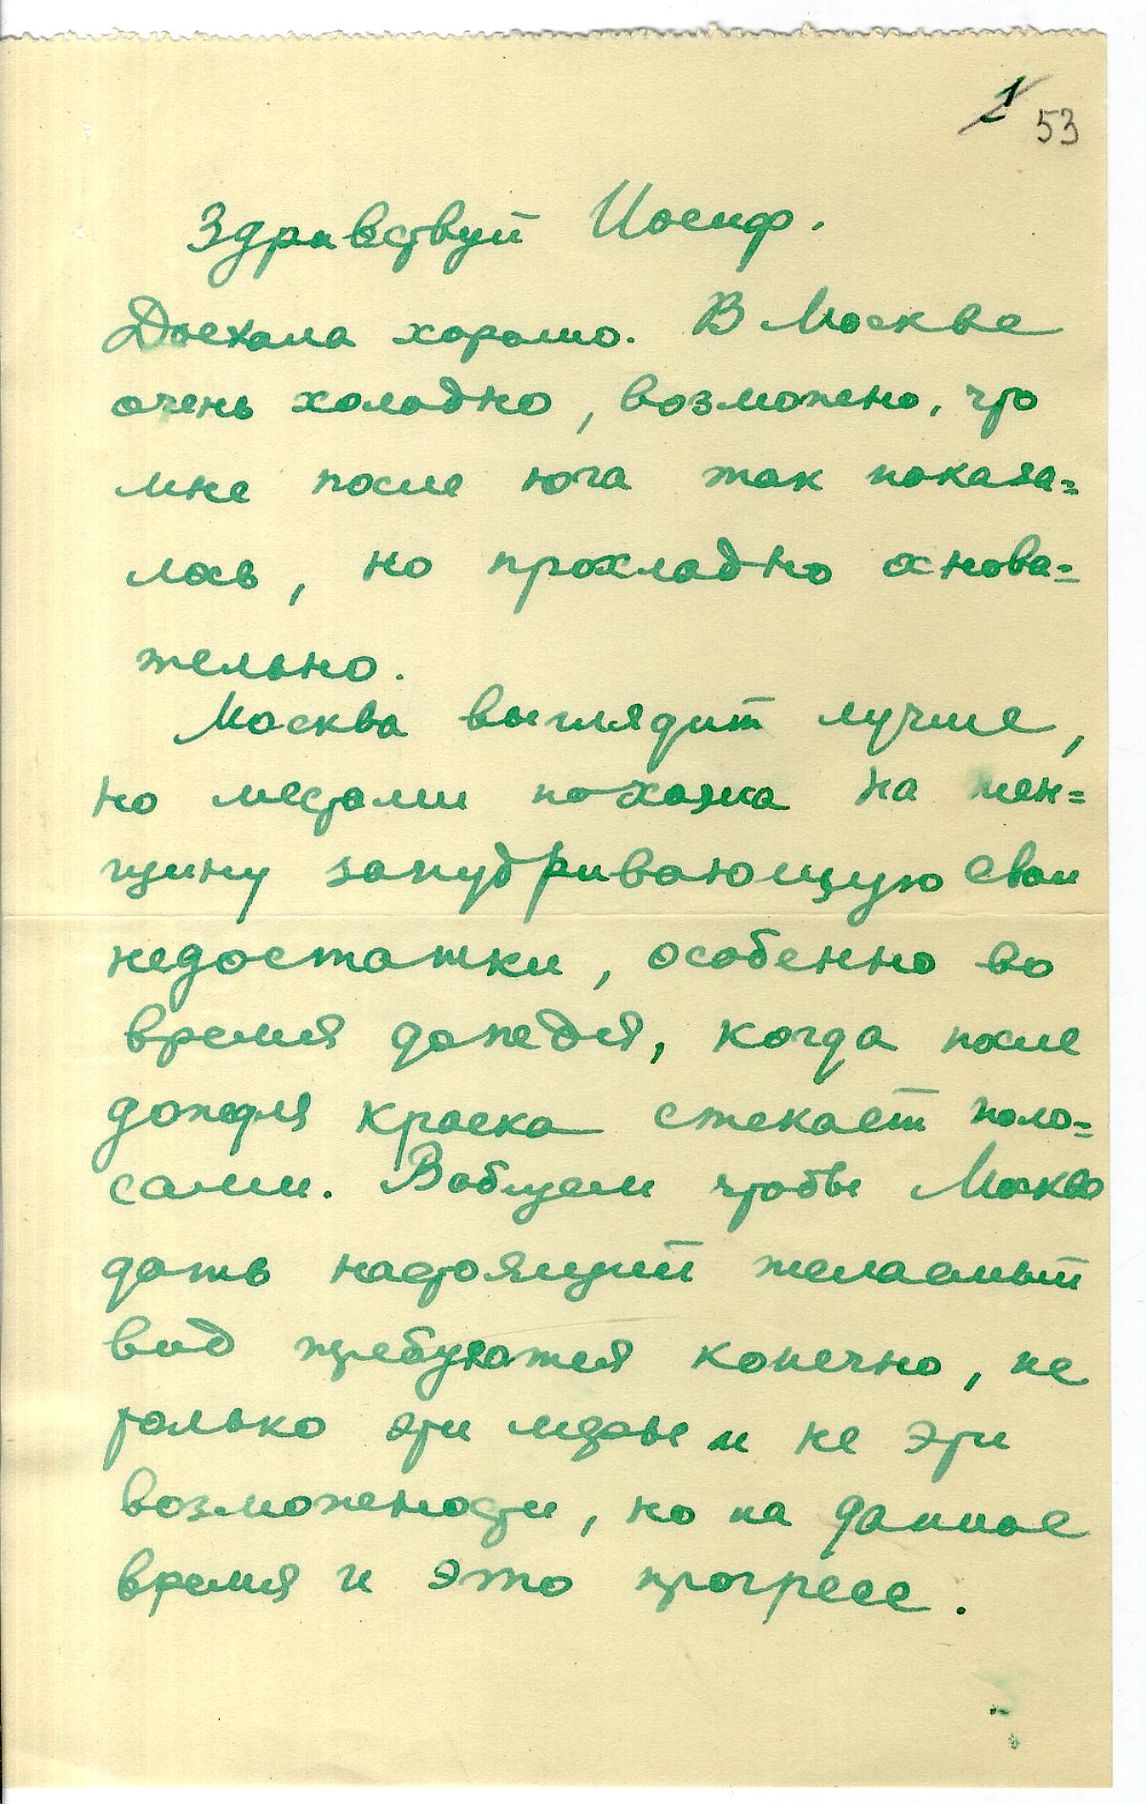 1 53
Здравствуй Иосиф.
Доехала хорошо. В Москве
очень холодно, возможно, что
мне после юга так показа=
лось, но прохладно основа=
тельно.
Москва выглядит лучше,
но местами похожа на жен=
щину запудривающую свои
недостатки, особенно во
время дождя, когда после
дождя краска стекает поло=
сами. Вобщем чтобы Москве
дать настоящий желаемый
вид требуются конечно, не
только эти меры и не эти
возможности, но на данное
время и это прогресс.